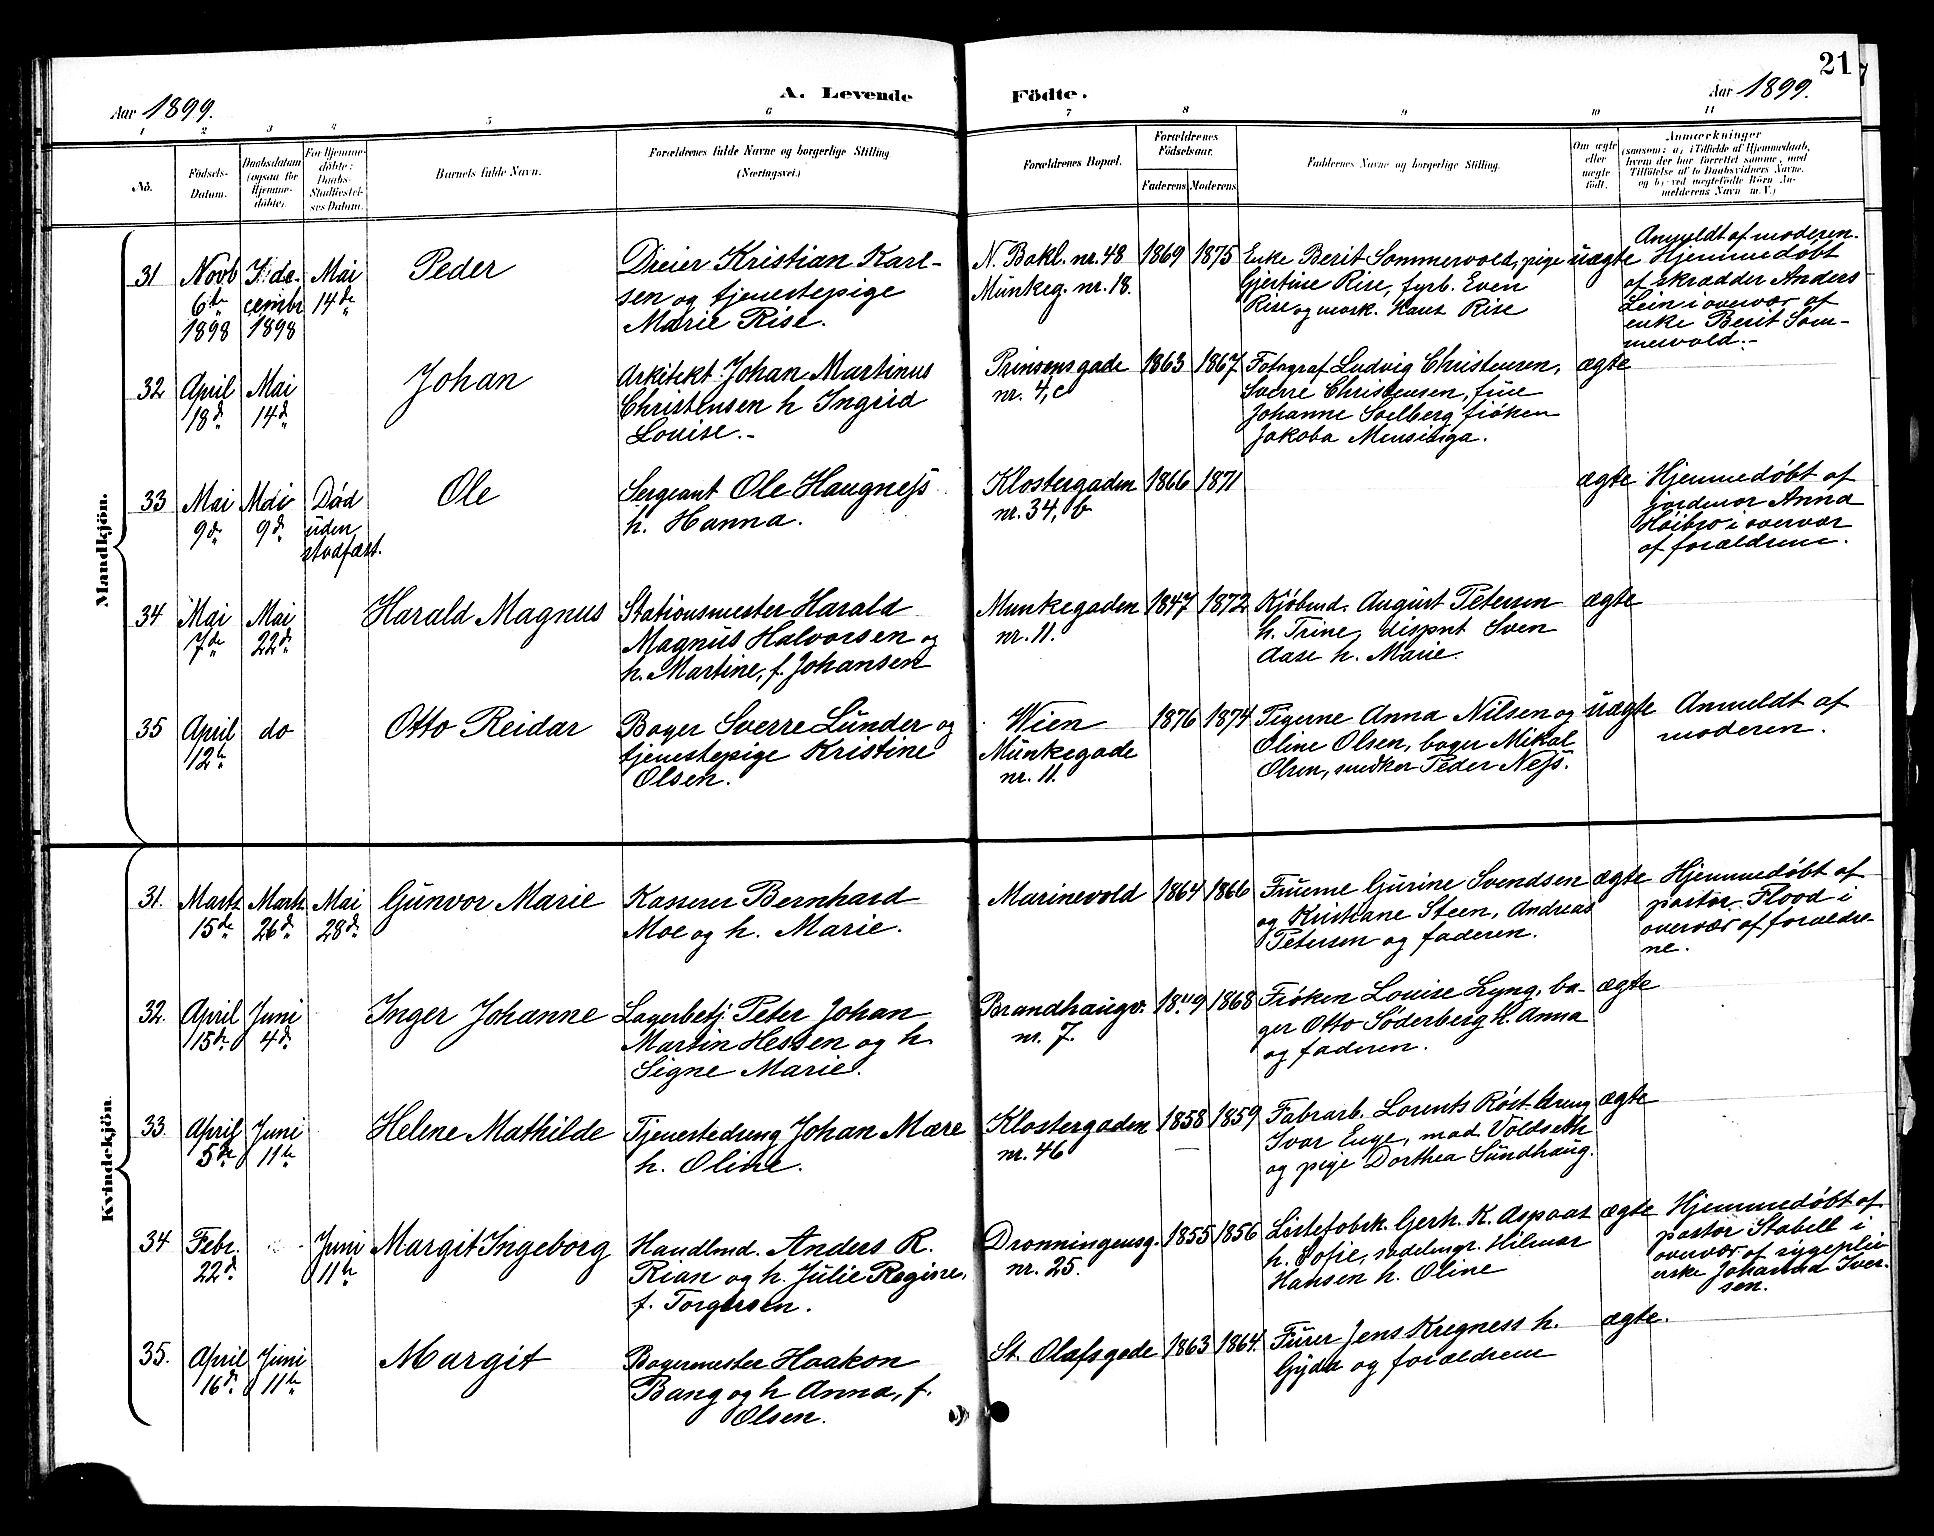 21
Aar 1899.
A. Levende Födte.
Aar 1899.
1 2 3 4 5 6 7 8 9 10 11
No.
Födsels-
Datum.
Daabsdatum
(ogsaa for
Hjemme-
döbte).
For Hjemme-
döbte:
Daabs-
Stadfæstel-
ses Datum.
Barnets fulde Navn.
Forældrenes fulde Navne og borgerlige Stilling
(Næringsvei.)
Forældrenes Bopæl.
Forældrenes
Födselsaar.
Faderens Moderens
Faddernes Navne og borgerlige Stilling.
Om ægte
eller
uægte
født.
Anmærkninger
(saasom: a, i Tilfælde af Hjemmedaab,
hvem der har forrettet samme, med
Tilföielse af to Daabsvidners Navne,
og b, ved uægtefödte Börn An-
melderens Navn m. V.)
Mandkjön.
31
Novb
6te
1898
cembr
1898
Mai
14de
Peder
Dreier Kristian Karl-
sen og tjenestepige
Marie Rise.
N. Bakl. nr. 48
Munkeg. nr. 18.
1869
1875
Enke Berit Sommervold, pige
Gjertine Rise, fyrb. Even
Rise og mask. Hans Rise
uægte
Anmeldt af moderen.
Hjemmedøbt
af skrædder Anders
Lein i overvær af
enke Berit Som-
mervold.-
32
April
18d.
Mai
14d.
Johan
Arkitekt Johan Martinus
Christensen h Ingrid
Louise.-
Prinsensgade
nr. 4, c
1863
1867
Fotograf Ludvig Christensen,
Sverre Christensen, frue
Johanne Solberg frøken
Jakoba
ægte
33
Mai
9d.
Mai
9d.
Død
uden
stadfæst.
Ole
Sergeant Ole Haugness
h. Hanna.
Klostergaden
nr. 34, b
1866
1871
ægte
Hjemmedøbt af
jordemor Anna
Høibro i overvær
af forældrene.
34
Mai
7de
Mai
22d.
Harald Magnus
Stationsmester Harald
Magnus Halvorsen og
h. Martine, f. Johansen
Munkegaden
nr. 11.
1847
1872
Kjøbmd. August Petersen
h. Trine, dispnt Sven
Aase h. Marie.
ægte
35
April
12te
do
Otto Reidar
Bager Sverre Lunder og
tjenestepige Kristine
Olsen.
Wien
Munkegade
nr. 11.
1876
1874
Pigerne Anna Nilsen og
Oline Olsen, bager Mikal
Olsen, snedker Peder Ness.
uægte
Anmeldt af
moderen.
Kvindekjön.
31.
Marts
15de
Marts
26d.
Mai
28d.
Gunvor Marie
Kasserer Bernhard
Moe og h. Marie.
Marinevold
1864
1866
Fruerne Gurine Svendsen
og Kristiane Steen, Andreas
Petersen og faderen.
ægte
Hjemmedøbt af
pastor Flood i
overvær af forældre-
ne.
32.
April
15de
Juni
4d.
Inger Johanne
Lagerbetj. Peter Johan
Martin Hessen og h.
Signe Marie.
Brandhaugv.
nr. 7.
1868
Frøken Louise Lyng, ba-
ger Otto Söderberg h. Anna
og faderen.
ægte
33.
April
5de
Juni
11te
Helene Mathilde
Tjenestedreng Johan Mære
h. Oline.
Klostergaden
nr. 46
1858
1859
Fabrarb. Lorents Røst-
Ivar Enge, mad. Voldseth
og pige Dorthea Sundhaug.
ægte
34
Febr.
22d.
Juni
11te
Margit Ingeborg
Handlmd. Anders R.
Rian og h. Julie Regine,
f. Torgersen.
Dronningensg.
nr. 25.
1855
1856
Listefabrk. Gerh. K. Aspaas
h. Sofie, sadelmgr. Hilmar
Hansen h. Oline
ægte
Hjemmedøbt af
pastor Stabell i
overvær af sygeplei-
erske Johanna Iver-
sen.
35.
April
16d.
Juni
11te
Margit
Bagermester Haakon
Bang og h Anna, f.
Olsen.
St. Olafsgade
1863
1864.
Furer Jens Kregness h.
Gyda og forældrene
ægte.